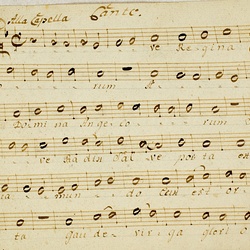 Alla Capella Canto.
ve Regina
rum A
Domina Angelo rum
ve Radix Sal ve porta
ta mundo lux est or
ta gau de vir go glori